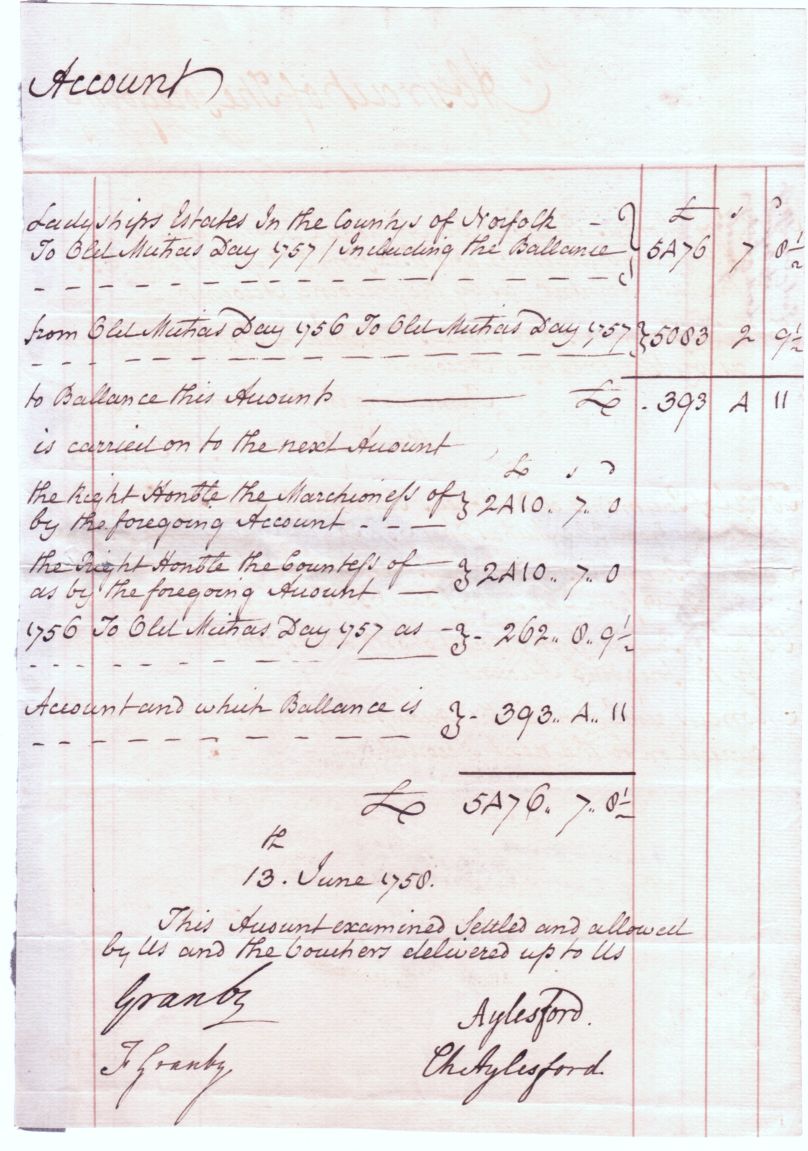 Account
£ s D
Ladyships Estates In the Countys of Norfolk –
To Old Michās Day 1757 / Including the Ballance } 5476 7 8½
from Old Michās Day 1756 To Old Michās Day 1757 } 5083 2 9½
to Ballance this Account £ - 393 4 11
is carried on to the next Account
£ s D
the Right Honble the Marchioness of
by the foregoing Account - - } 2410.. 7.. 0
the Right Honble the Countess of
as by the foregoing Account } 2410.. 7.. 0
1756 To Old Michās Day 1757 as - } - 262.. 8.. 9½
Account and which Ballance is } - 393.. 4.. 11
£ 5476.. 7.. 8½
th
13. June 1758.
This Account examined Settled and allowed
by Us and the Vouchers delivered up to Us
Granby Aylesford.
F Granby Ch Aylesford.